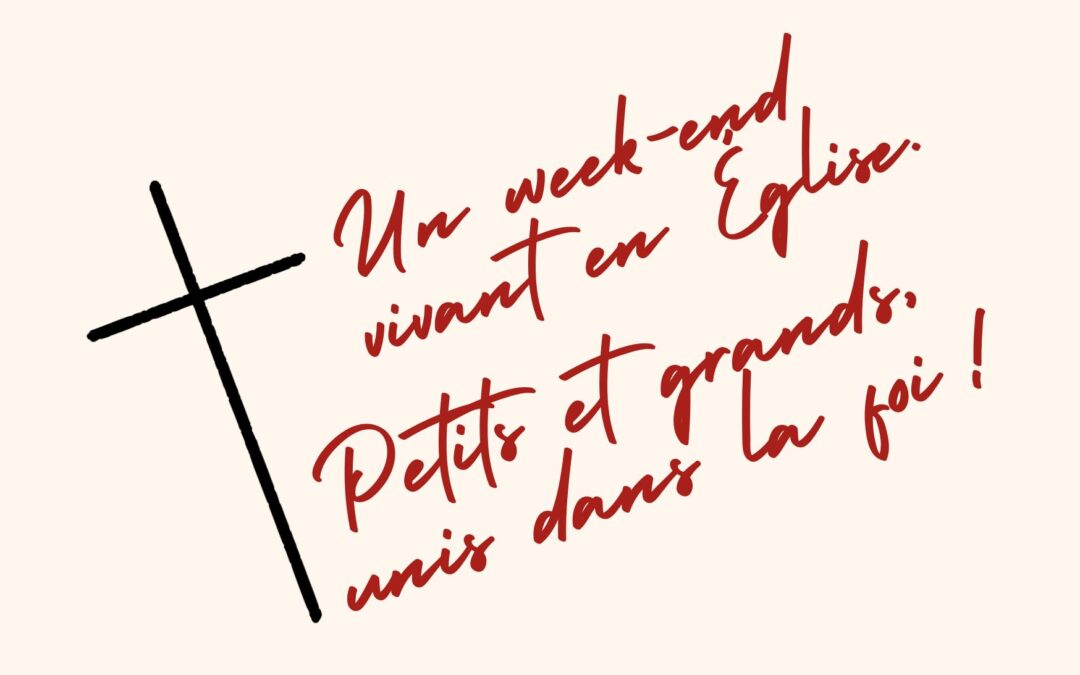 Un week-end
vivant en Église.
Petits et grands,
unis dans la foi !